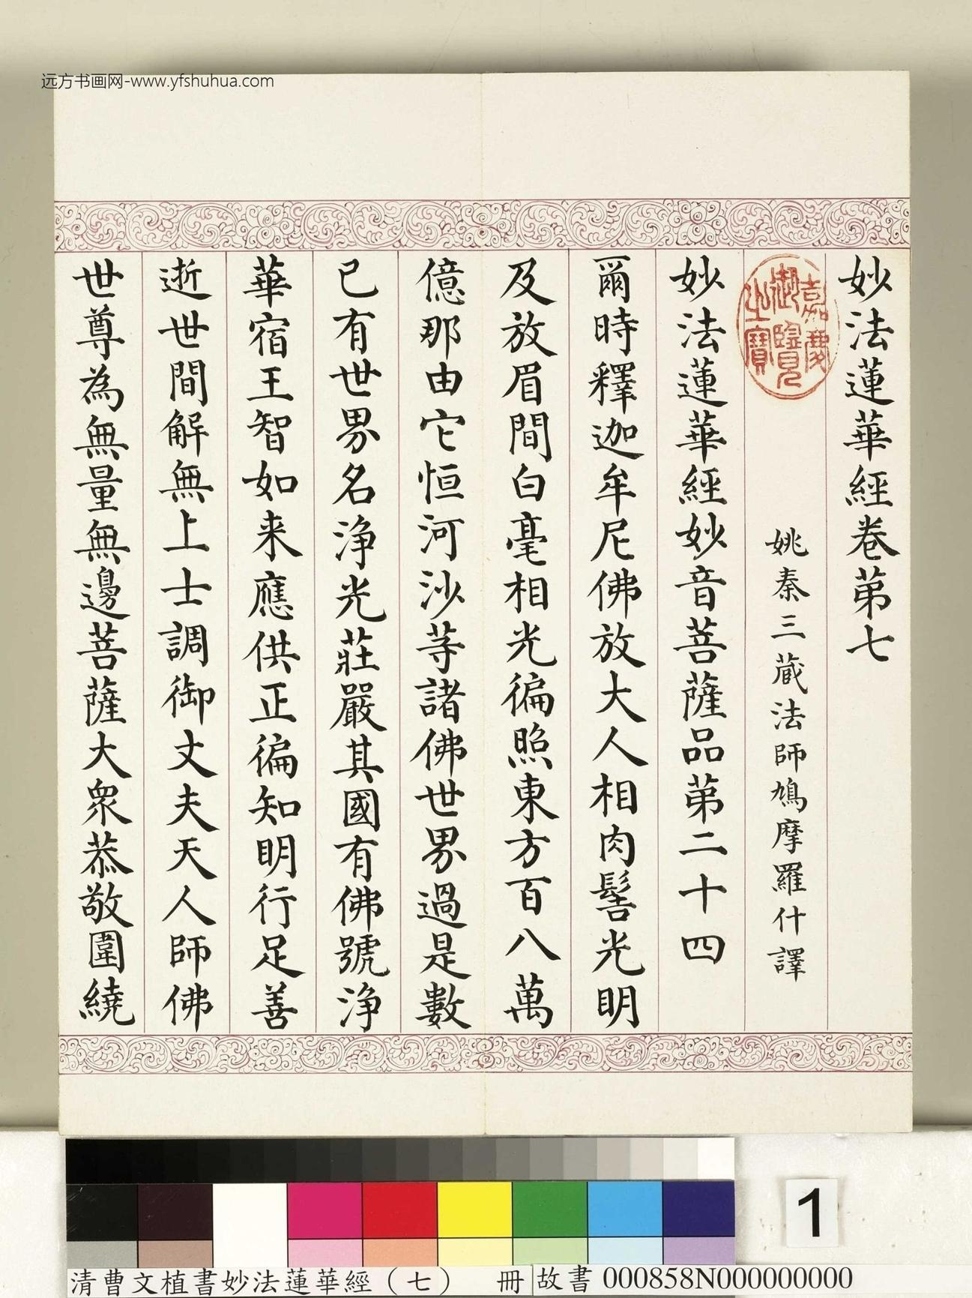 远方书画网-www.yfshuhua.com
妙法蓮華經卷第七
嘉慶御覽之寶
姚秦三藏法師鳩摩羅什譯
妙法蓮華經妙音菩薩品第二十四
爾時釋迦牟尼佛放大人相肉髻光明
及放眉間白毫相光徧照東方百八萬
億那由它恒河沙等諸佛世界過是數
已有世界名淨光莊嚴其國有佛號淨
華宿王智如来應供正徧知明行足善
逝世間解無上士調御丈夫天人師佛
世尊為無量無邊菩薩大眾恭敬圍繞
1
清曹文植書妙法蓮華經（七） 冊 故書 000858N000000000